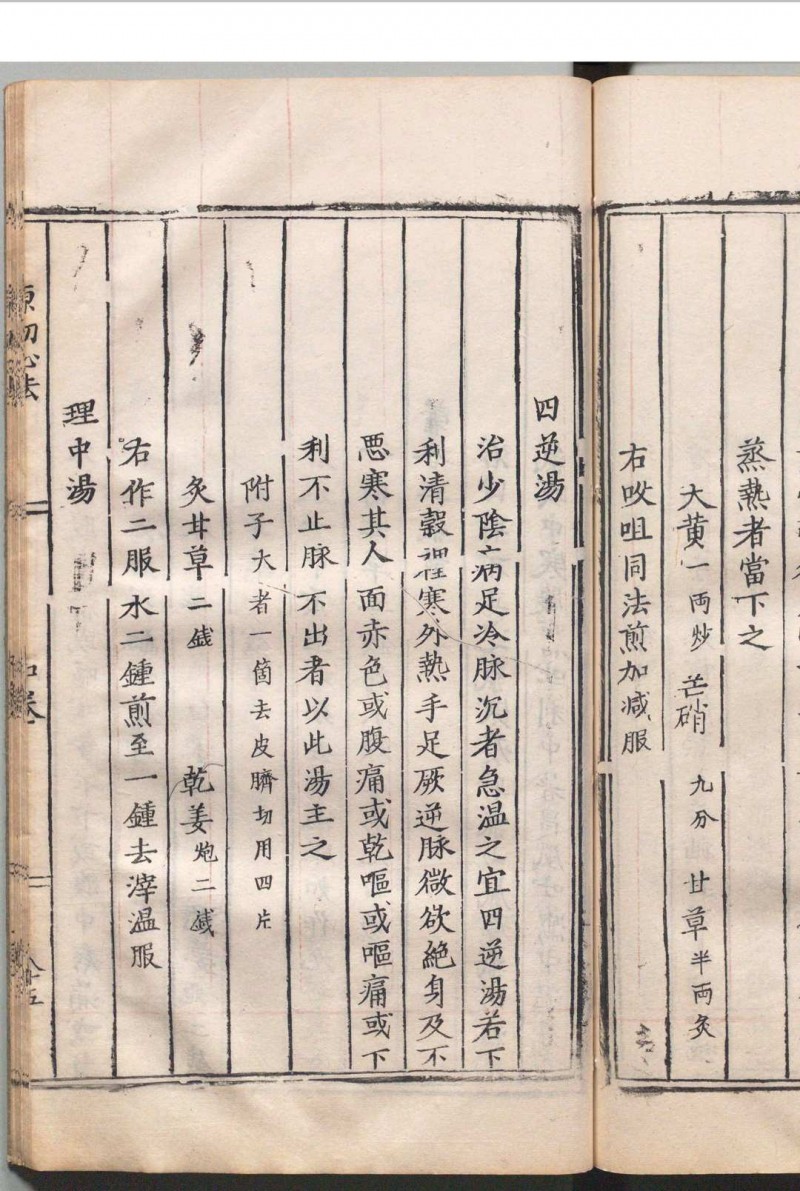 蒸熱者當下之
大黄一両炒 芒硝九分 甘草半両灸
右㕮咀同法煎加减服
四逆湯
治少陰病足冷脉沉者急温之宜四逆湯若下
利清穀裡寒外熱手足厥逆脉微欲絶身及不
悪寒其人面赤色或腹痛或乾嘔或嘔痛或下
利不止脉不出者以此湯主之
附子大者一箇去皮臍切用四片
灸甘草二錢 乾姜炮二錢
右作二服水二鍾煎至一鍾去滓温服
理中湯